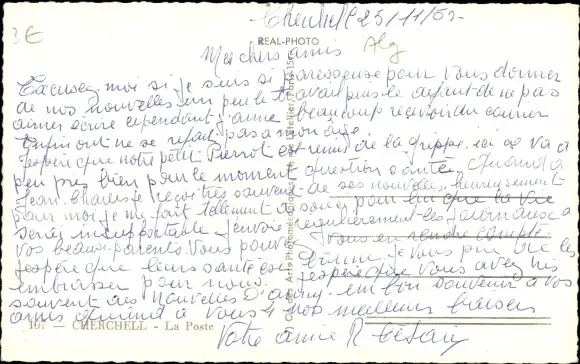 3€
Cherchell 25/11/53
REAL-PHOTO
Alg
Mes chers amis
Excusez moi si je suis si paresseuse pour vous donner
de nos nouvelles un peu le
aimer écrire cependant j'aime beaucoup recevoir du courrier
Enfin on ne se refait pas a mon age
J'espère que notre petit Pierrot est remis de la grippe. ici ca va a
peu près bien pour le moment question santé. Quand a
Jean Charles je reçois très souvent de ses nouvelles heureusement
pour moi je me fait tellement de souci pour lui que la vie
serait insupportable J'envoie régulièrement les journaux a
vos beaux parents. Vous pouvez vous en rendre compte.
j'espère que leur santé est bonne. je vous prie de les
embrasser pour nous. j'espère que vous avez
souvent des nouvelles d' un bon souvenir a vos
amis quand a vous 4 nos meilleurs baisers
Votre amie R
107 — CHERCHELL - La Poste